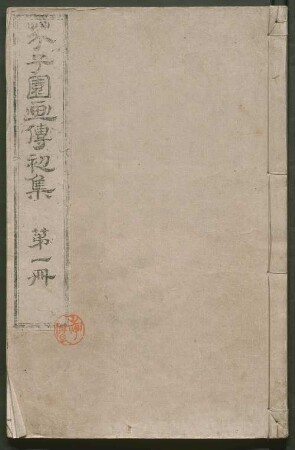 芥子園画傳初集 第一冊